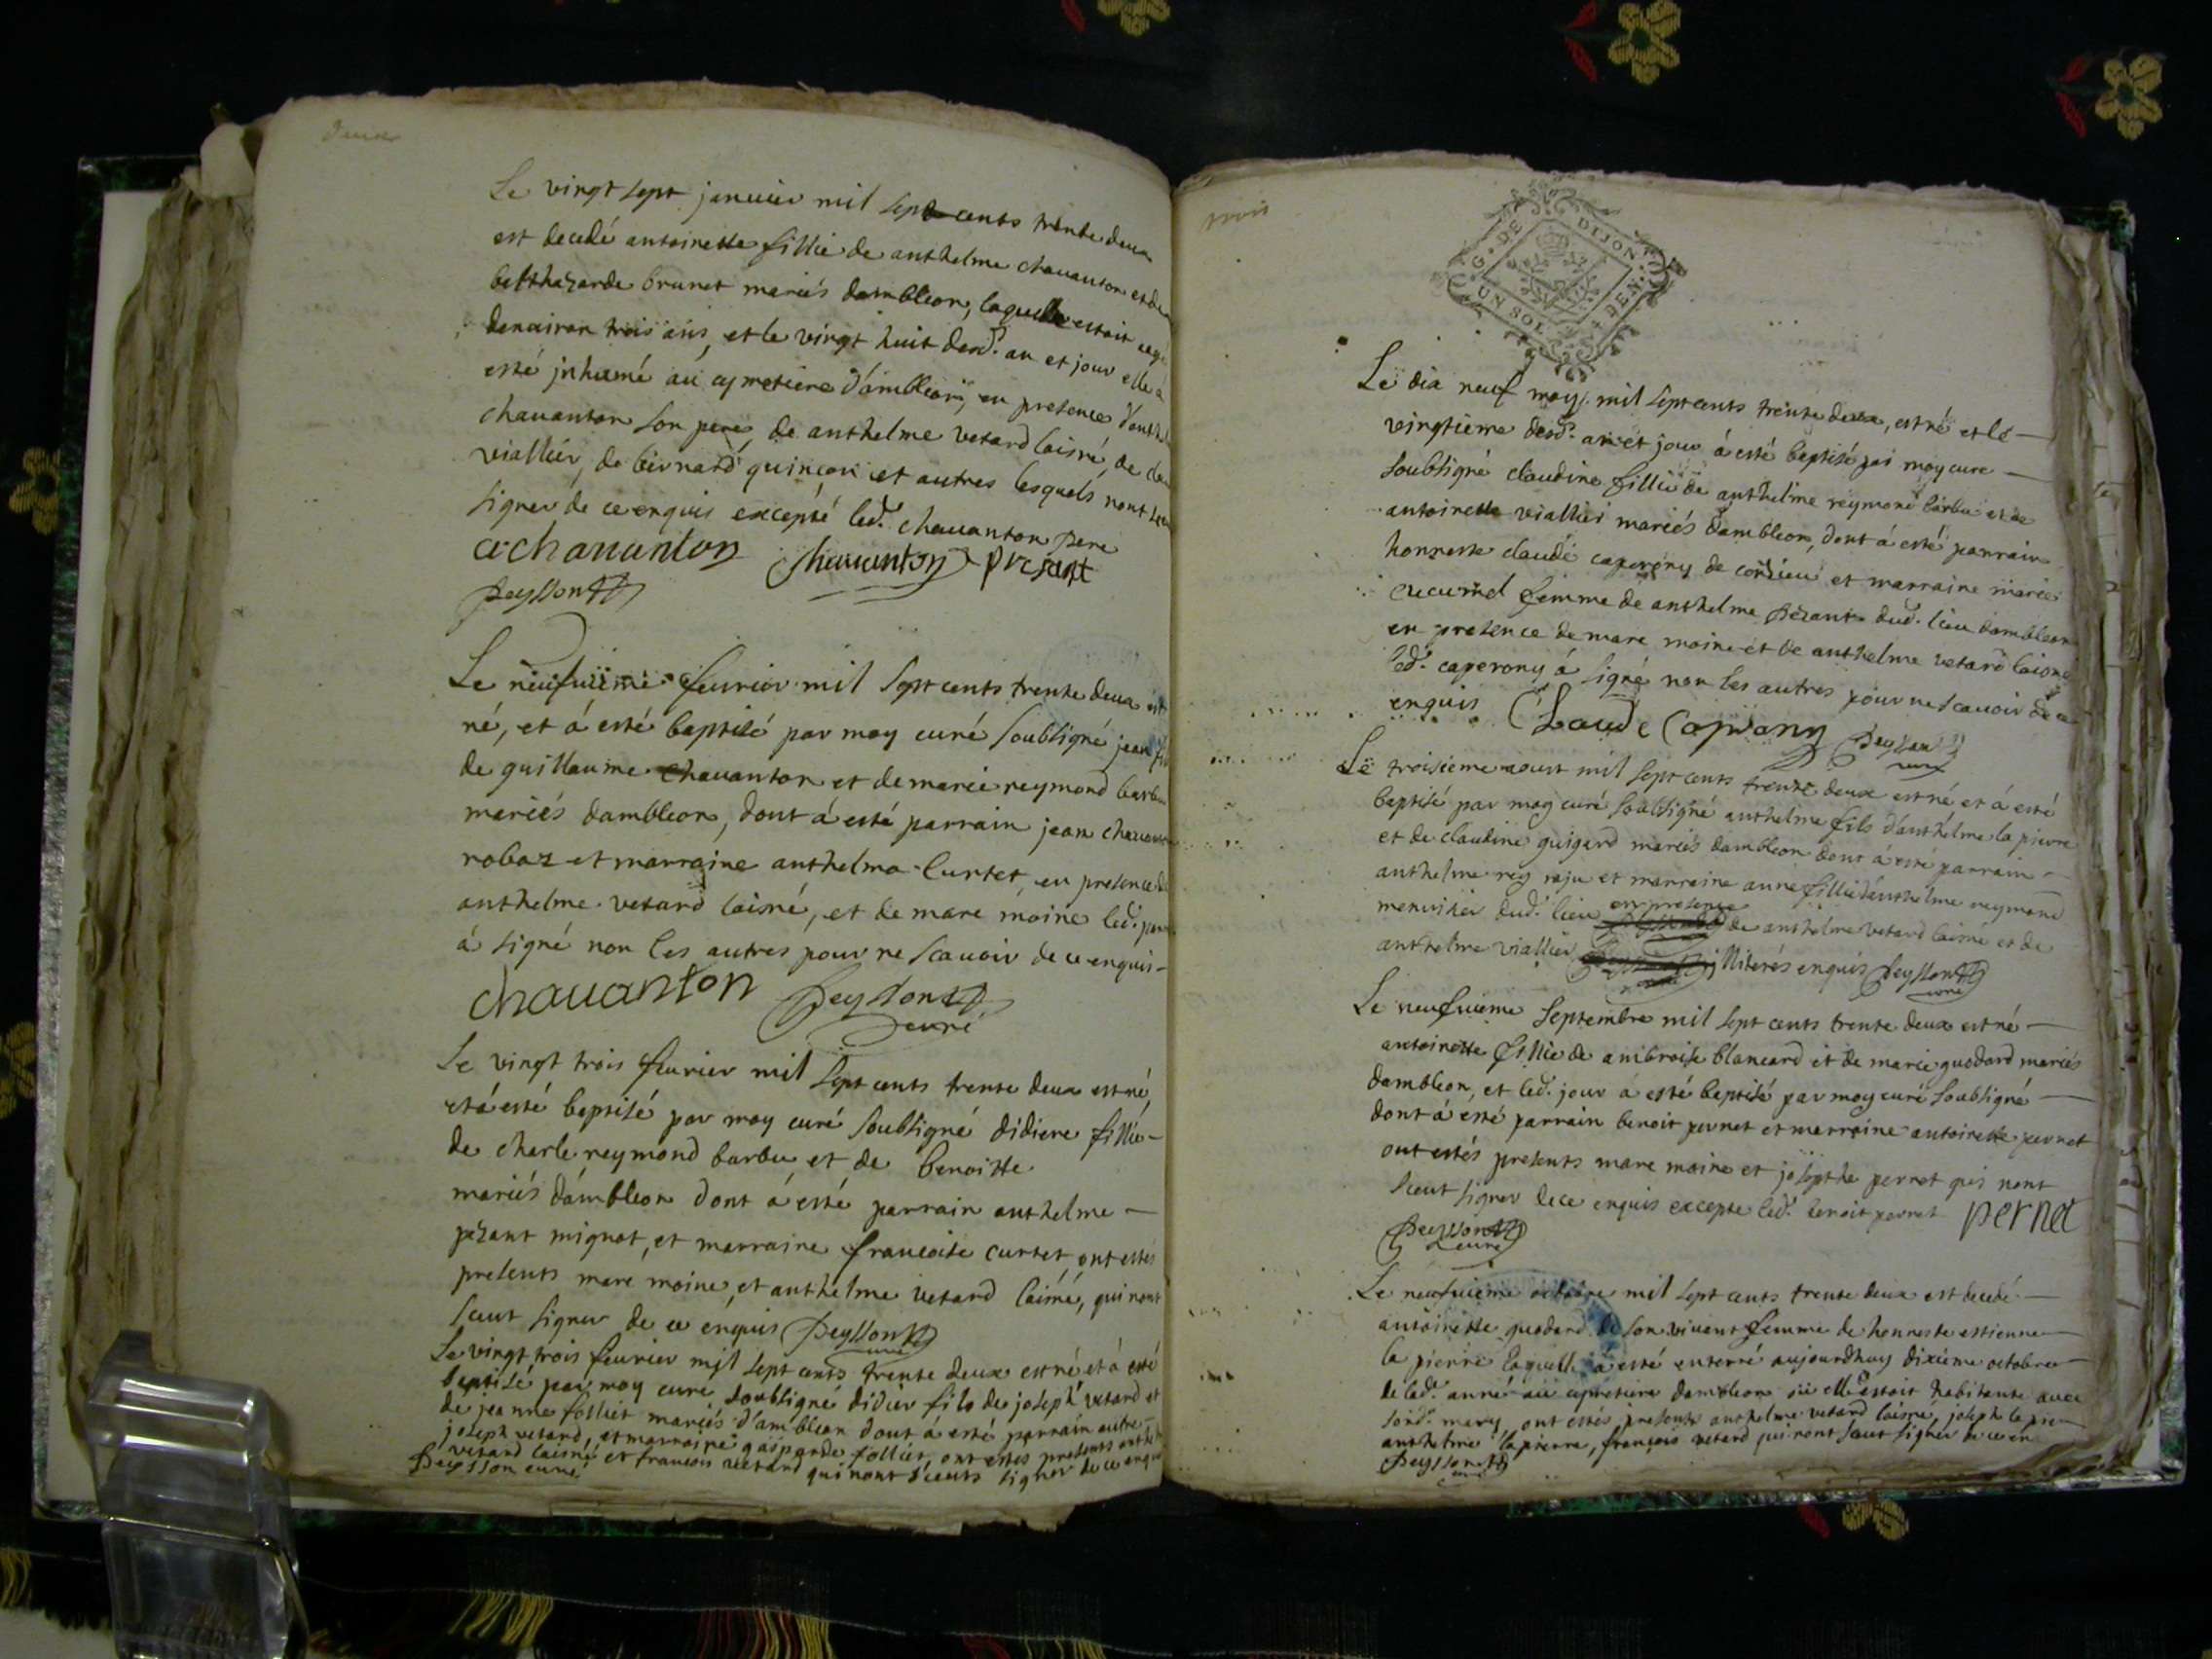 deux
Le vingt sept januier mil sept cents trente deux
est decedé antoinette fillie de anthelme chauanton et de
balthazarde brunet mariés dambleon, laquelle estoit agé
denuiron trois ans, et le vingt huit desd. an et jour elle a
esté inhumé au cymetiere d'ambleon, en presence
chauanton son pere, de anthelme vetard laisné, de
viallier, de bernard quinson et autres lesquels nont sceu
signer de ce enquis excepté led. chauanton pere
chauanton chauanton present
peysson
Le neufuieme feurier mil sept cents trente deux est
né, et á esté baptisé par moy curé soubsigné jean fils
de guillaume chauanton et de marie reymond barbu
mariés dambleon, dont á esté parrain jean
robaz et marraine anthelma curtet, en presence de
anthelme vetard laisné, et de marc moine led.
á signé non les autres pour ne scauoir de ce enquis
chauanton peysson
curé
Le vingt trois feurier mil sept cents trente deux est né,
et á esté baptisé par moy curé soubsigné didiere fillie
de charle reymond barbu et de benoitte
mariés dámbleon dont á esté parrain anthelme
pézant mignot, et marraine francoise curtet, ont estés
presents marc moine, et anthelme vetard laisné, qui nont
sceut signer de ce enquis peysson
curé
Le vingt trois feurier mil sept cents trente deux est né et á esté
baptisé par moy curé soubsigné didier fils de joseph vetard et
de jeanne folliet mariés d'ambleon dont á esté parrain autre
joseph vetard, et marraine gasparde folliet, ont estes presents
vetard laisné et francois vetard qui nont sceuts signer de ce enquis
peysson curé
trois
G. DE DIJON
UN SOL 4 DEN.
Le dix neuf may mil sept cents trente deux, est né et le
vingtieme desd. an et jour á esté baptisé par moy curé
soubsigné claudine fillie de anthelme reymond barbu et de
antoinette viallier mariés dambleon, dont á esté parrain
honneste claude caperony de conzieu et marraine marie
cucurnel femme de anthelme pézant dud. lieu dambleon
en presence de marc moine et de anthelme vetard laisné
led. caperony á signé non les autres pour ne scauoir de ce
enquis Claude Caprony peysson
curé
Le troisieme aoust mil sept cents trente deux est né et á esté
baptisé par moy curé soubsigné anthelme fils d'anthelme la pierre
et de claudine guigard mariés dambleon dont á esté parrain
anthelme rey et marraine anne fillie d'anthelme reymond
dud. lieu en presence de anthelme vetard laisné et de
anthelme viallier illiterés enquis peysson
curé
Le neufuieme septembre mil sept cents trente deux est né
antoinette fillie de ambroise blancard et de marie guodard mariés
dambleon, et led. jour a esté baptisé par moy curé soubsigné
dont á esté parrain benoit pernet et marraine antoinette pernet
ont estés presents marc moine et josepthe pernet qui nont
sceut signer de ce enquis excepte led. benoit pernet pernet
peysson
curé
Le neufuieme octobre mil sept cents trente deux est decedé
antoinette guodard de son viuant femme de honneste estienne
la pierre laquelle á esté enterré aujourdhuy dixieme octobre
de lad. année au cymetiere dambleon où elle estoit habitante auec
sond. mary, ont estés presents anthelme vetard laisné, joseph la pierre
anthelme lapierre, françois vetard qui nont sceut signer de ce en
peysson
curé